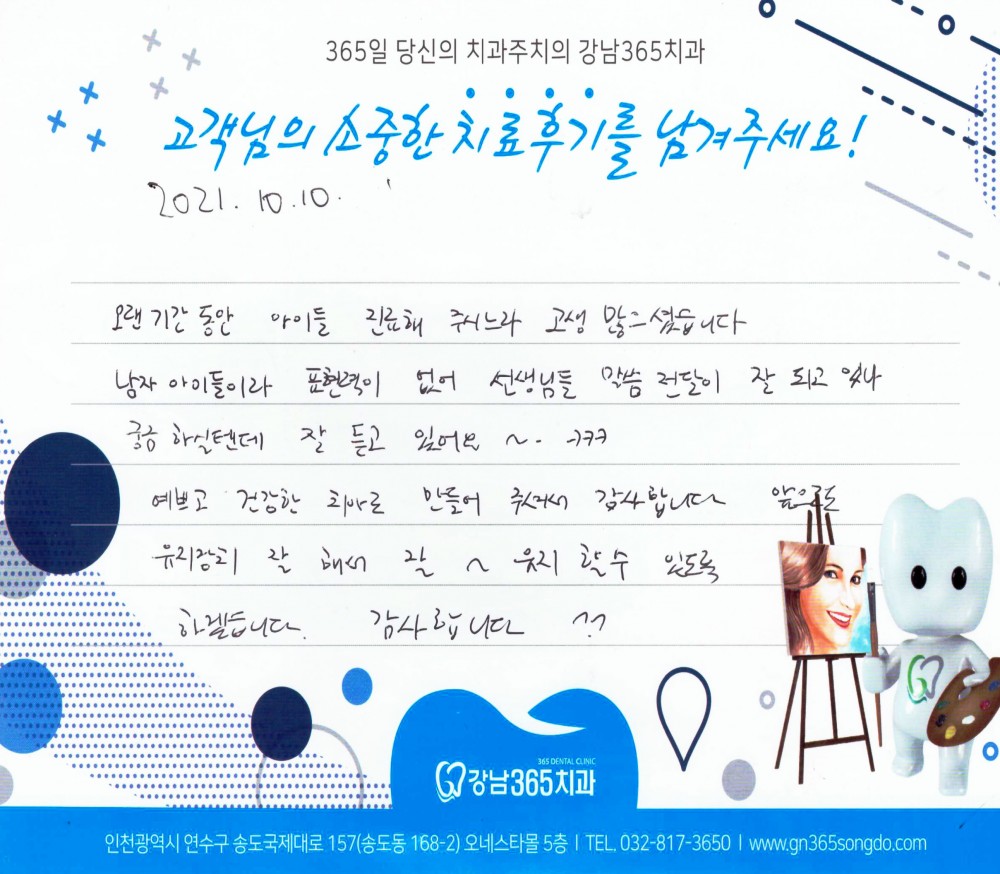 365일 당신의 치과주치의 강남365치과
고객님의 소중한 치료후기를 남겨주세요!
2021. 10.10.
오랜 기간 동안 아이들 진료해 주시느라 고생 많으셨습니다
남자 아이들이라 표현력이 없어 선생님들 말씀 전달이 잘 되고 있나
궁금 하실텐데 잘 듣고 있어요 ~. ㅋㅋㅋ
예쁘고 건강한 치아로 만들어 주셔서 감사합니다 앞으로도
유지장치 잘 해서 잘 ~ 유지 할 수 있도록
하겠습니다. 감사합니다 ^^
365 DENTAL CLINIC
강남365치과
인천광역시 연수구 송도국제대로 157(송도동 168-2) 오네스타몰 5층 I TEL. 032-817-3650 I www.gn365songdo.com